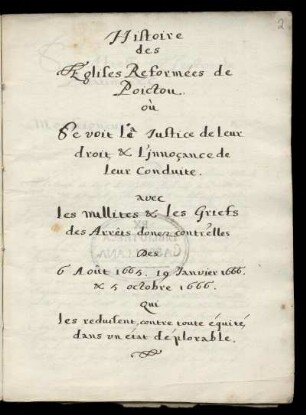 2
Histoire
des
Eglises Reformées de
Poictou.
où
Se voit la Justice de leur
droit & L'innoçance de
leur Conduite.
avec
les nullites & les Griefs
des Arrêts donez contr'elles
Des
6 Août 1665. 19 Janvier 1666.
& 5 octobre 1666.
qui
les reduisent, contre toute équité,
dans un état déplorable.